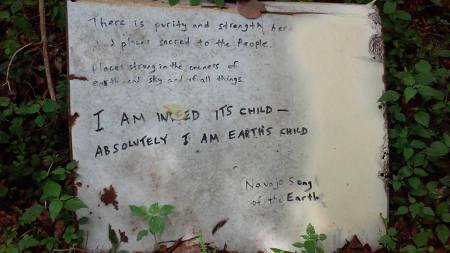 There is purity and strength her
places sacred to the People.
Places strong in the oneness of
earth and sky and of all things.
I AM IN ED ITS CHILD —
ABSOLUTELY I AM EARTH'S CHILD
Navajo Song
of the Earth